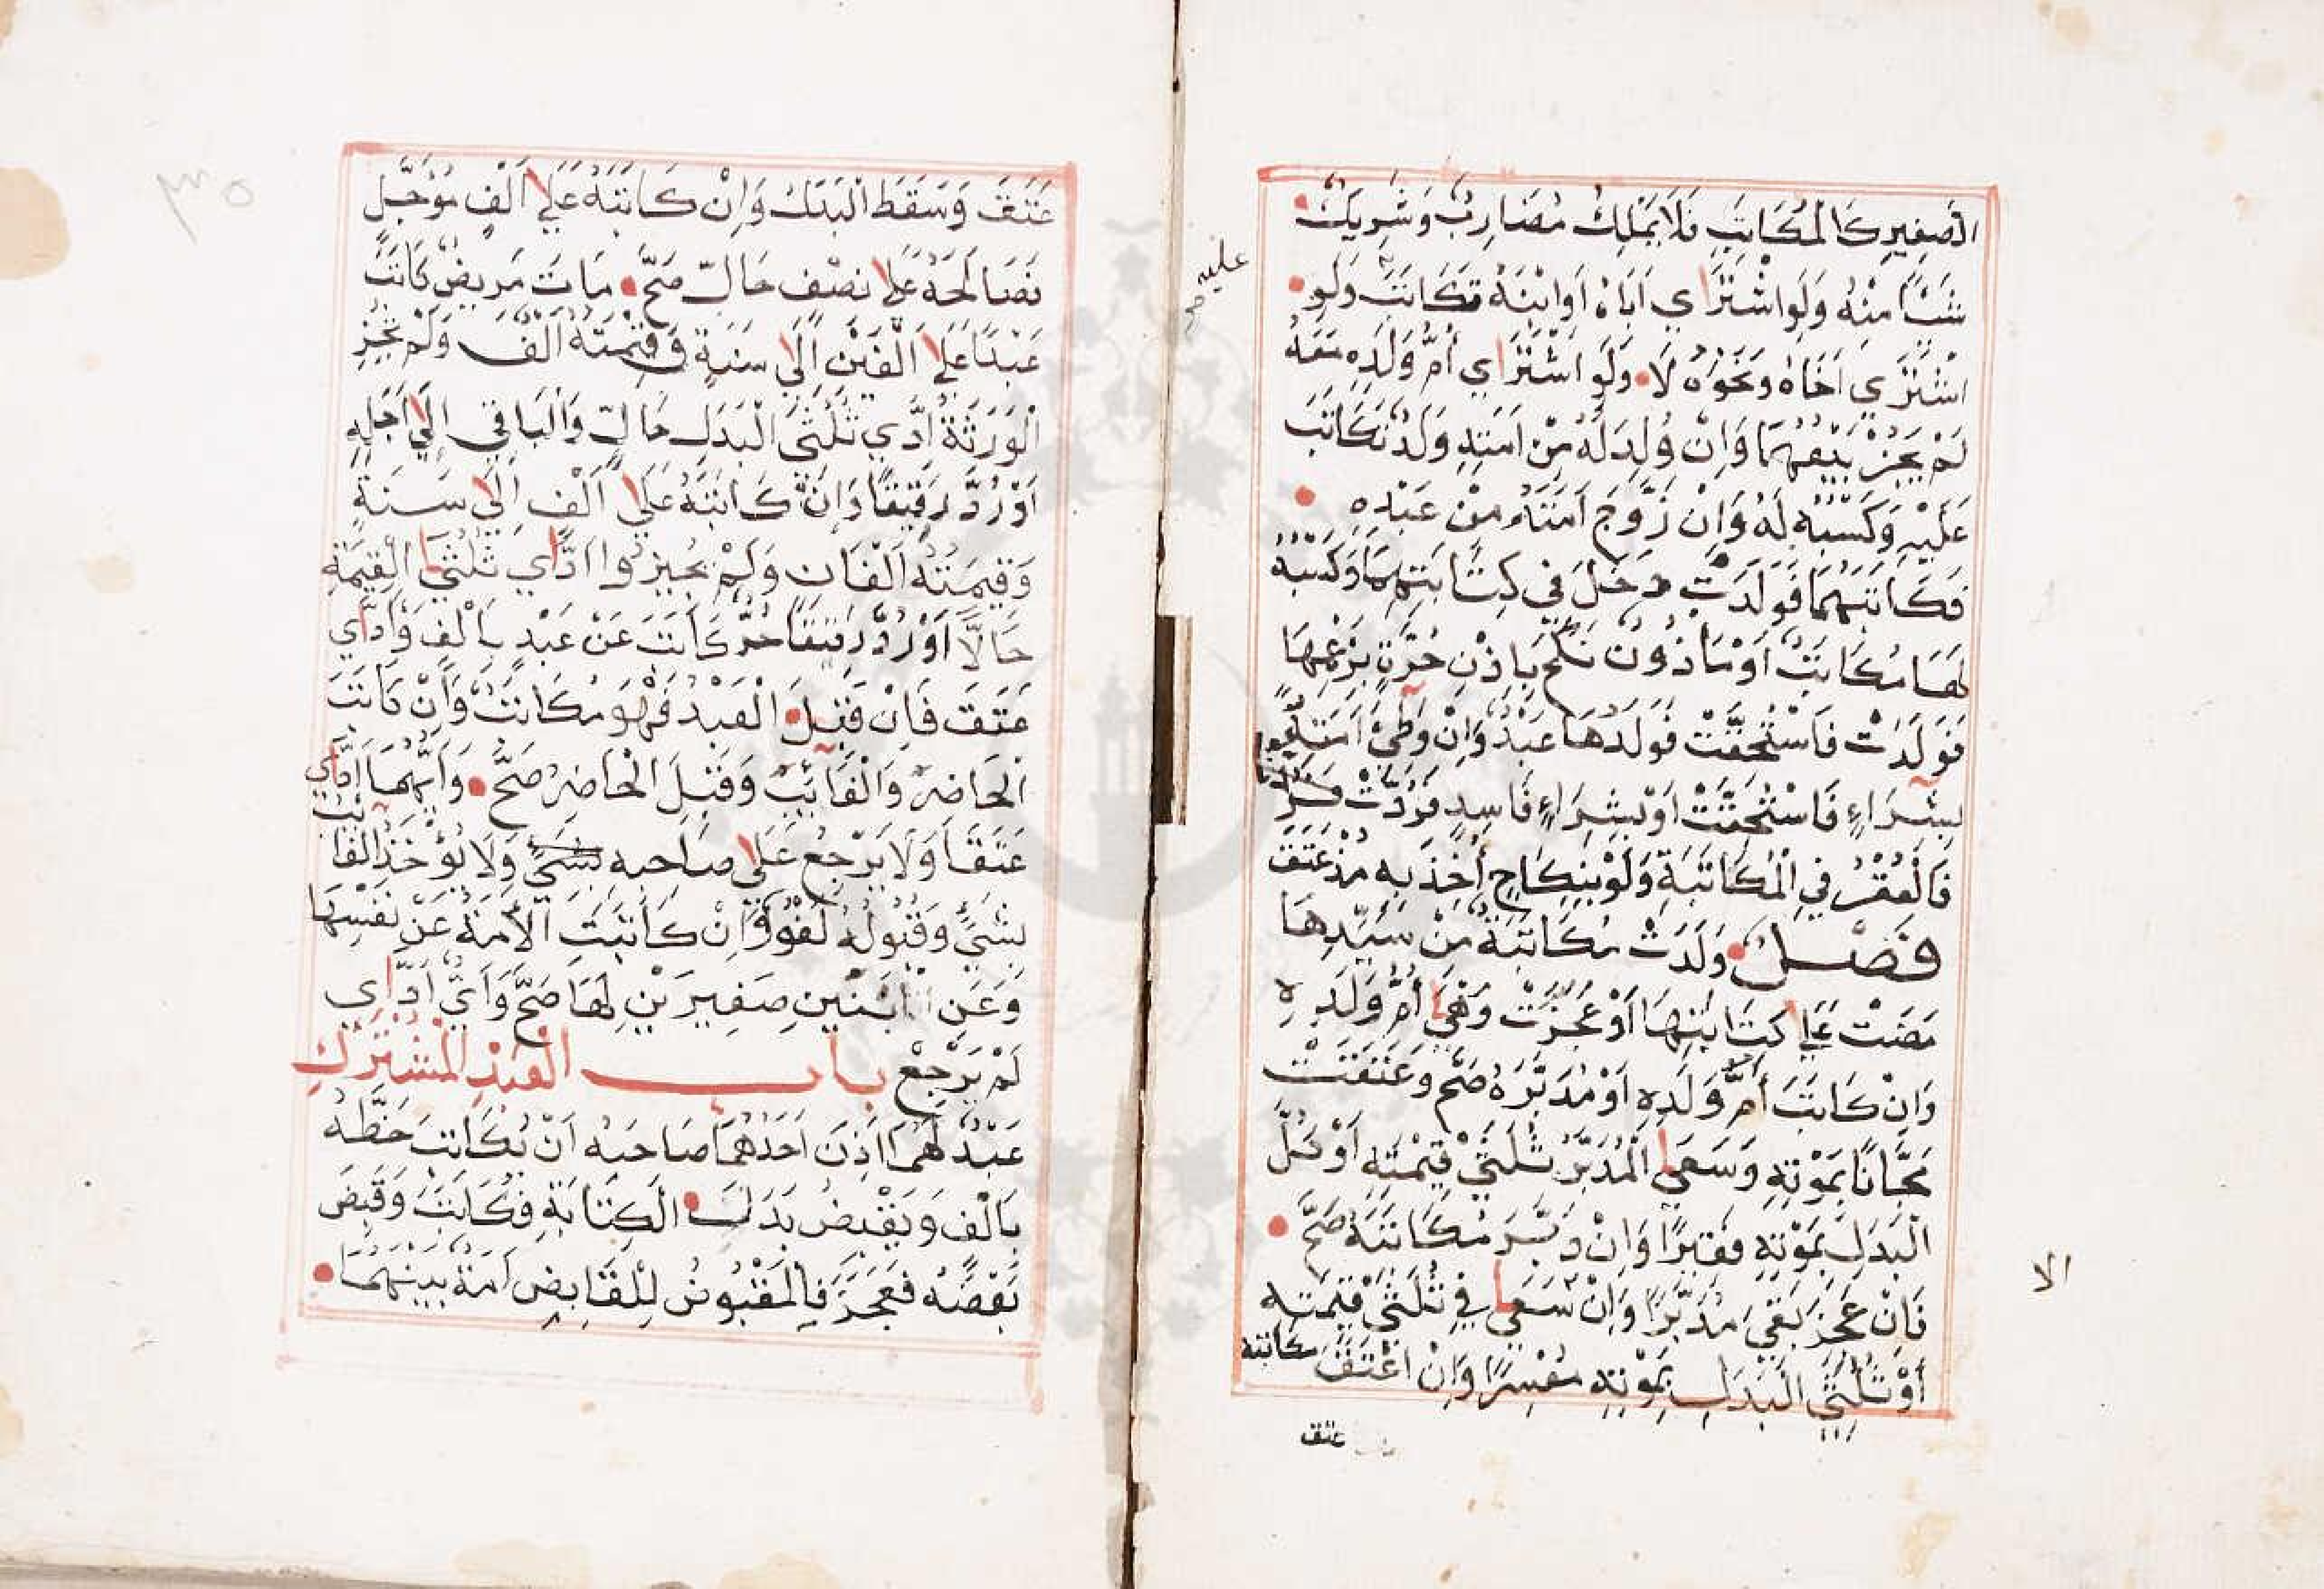 الصغير كالمكاتب فلا يملك مضارب وشريك
شيئا منه ولو اشتري اباه او ابنه تكاتب ولو
اشتري اخاه ونحوه لا ولو اشتراي ام ولده معه
لم يجز بيعهما وان ولد له من امته ولد تكاتب
عليه وكسبه له وان زوج امته من عبده
فكاتبهما فولدت دخل في كتابتهما وكسبه
لها مكاتب او ماذون نكح باذن حرة بزعمها
فولدت فاستحقت فولدها عبد وان وطئ امة
بشراء فاستحقت او بشراء فاسد فردت
فالعقر في المكاتبة ولو بنكاح أخذ به مذ عتق
فصل ولدت مكاتبة من سيدها
مضت علي كتابتها أو عجزت وهي أم ولده
وان كاتب أم ولده او مدبره صح وعتقت
مجانا بموته وسعي المدبر ثلثي قيمته أو كل
البدل بموته فقيرا وان دبر مكاتبه صح
فان عجز بقي مدبرا وان سعي في ثلثي قيمته
أو ثلثي البدل بموته معسرا وان اعتق مكاتبه
عتق
عليه صح
الا
عتق وسقط البدل وان كاتبه علي الف مؤجل
فصالحه علي نصف حال صح مات مريض كاتب
عبدا علي الفين الي سنة وقيمته الف ولم يجز
الورثة أدي ثلثي البدل حال والباقي الي اجله
او رد رقيقا وان كاتبه علي الف الي سنة
وقيمته الفان ولم يجيزوا ادي ثلثي القيمة
حالا او رد رقيقا حر كاتب عن عبد بالف وأدي
عتق فان قبل العبد فهو مكاتب وان كاتب
الحاضر والغائب وقبل الحاضر صح وأيهما ادي
عتقا ولا يرجع علي صاحبه بشي ولا يؤخذ الغائب
بشي وقبوله لغو وان كاتبت الأمة عن نفسها
وعن ابنين صغيرين لها صح وأي أدي
لم يرجع باب العبد المشترك
عبد لهما اذن احدهما صاحبه ان يكاتب حظه
بالف ويقبض بدل الكتابة فكاتب وقبض
بعضه فعجز فالمقبوض للقابض امة بينهما
٣٥